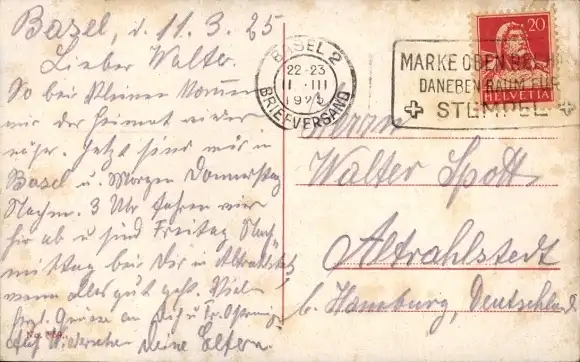 Basel, d. 11.3.25
Lieber Walter.
So bei Kleinem kommen
wir der Heimat wieder
näher. Jetzt sind wir in
Basel u. Morgen Donnerstag
Nachm. 3 Uhr fahren wir
hir ab u sind Freitag Nach
mittag bei Dir in Altrahlstedt,
wenn Alles gut geht. Viele
Grüsse an Dich u Fr.
Auf Wiedersehen Deine Eltern.
BASEL 2
22-23
11 · III
1925
BRIEFVERSAND
MARKE OBEN
DANEBEN RAUM FÜR
STEMPEL
20
HELVETIA
Herrn
Walter Spott
Altrahlstedt
b. Hamburg, Deutschland